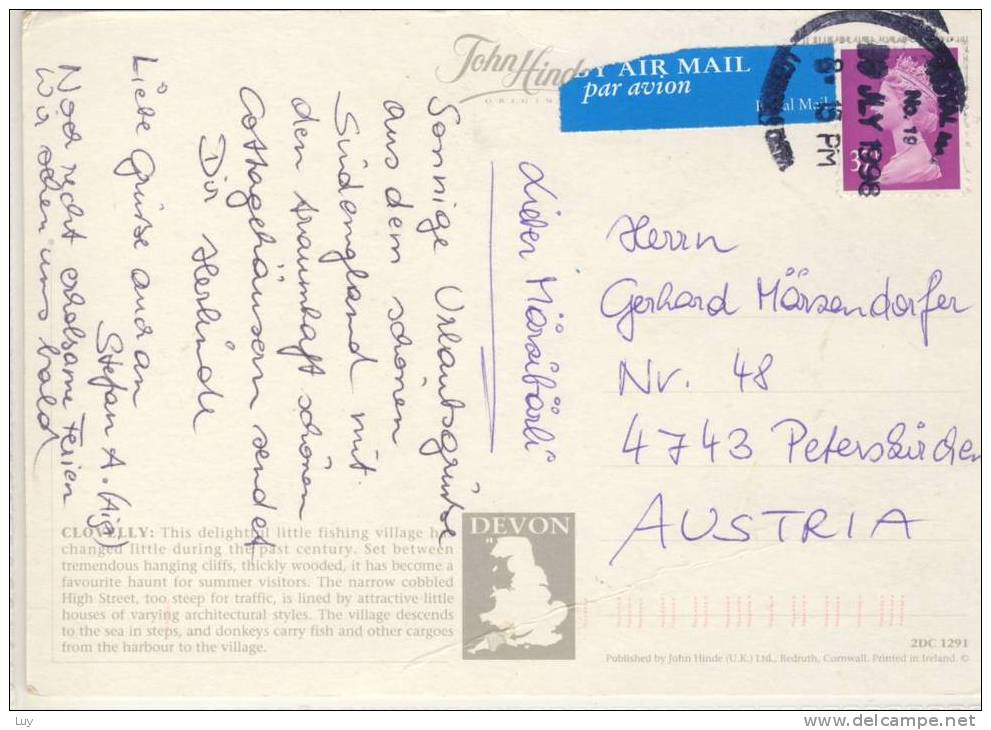 John Hinde
ORIGINAL
BY AIR MAIL
par avion
Royal Mail
No. 19
JLY 1998
8. 15 PM
37
Lieber
Sonnige Urlaubsgrüße
aus dem schönen
Südengland mit
den traumhaft schönen
Cottagehäusern sendet
Dir Herlinde
Liebe Grüsse auch an
Stefan A. (Aig)
Noch recht erholsame Ferien
Wir sehen uns bald
Herrn
Gerhard Märzendorfer
Nr. 48
4743 Peterskirchen
AUSTRIA
CLOVELLY: This delightful little fishing village has
changed little during the past century. Set between
tremendous hanging cliffs, thickly wooded, it has become a
favourite haunt for summer visitors. The narrow cobbled
High Street, too steep for traffic, is lined by attractive little
houses of varying architectural styles. The village descends
to the sea in steps, and donkeys carry fish and other cargoes
from the harbour to the village.
DEVON
2DC 1291
Published by John Hinde (U.K.) Ltd., Redruth, Cornwall. Printed in Ireland. ©
Luy
www.delcampe.net